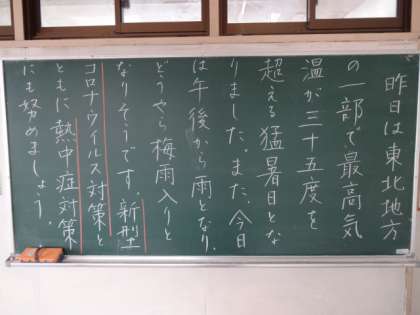 昨日は東北地方
の一部で最高気
温が三十五度を
超える猛暑日とな
りました。また、今日
は午後から雨となり、
どうやら梅雨入りと
なりそうです。新型
コロナウイルス対策と
ともに熱中症対策
にも努めましょう。